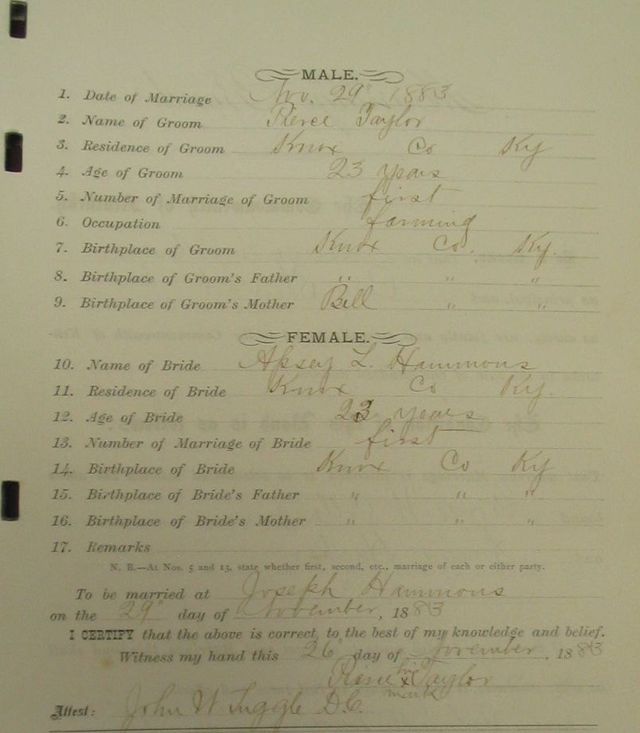 MALE.
1. Date of Marriage Nov. 29" 1883
2. Name of Groom Pierce Taylor
3. Residence of Groom Knox Co Ky
4. Age of Groom 23 years
5. Number of Marriage of Groom first
6. Occupation farming
7. Birthplace of Groom Knox Co. Ky.
8. Birthplace of Groom's Father " " "
9. Birthplace of Groom's Mother Bell " "
FEMALE.
10. Name of Bride Apsey L. Hammons
11. Residence of Bride Knox Co Ky.
12. Age of Bride 23 years
13. Number of Marriage of Bride first
14. Birthplace of Bride Knox Co Ky
15. Birthplace of Bride's Father " " "
16. Birthplace of Bride's Mother " " "
17. Remarks
N. B.—At Nos. 5 and 13, state whether first, second, etc., marriage of each or either party.
To be married at Joseph Hammons
on the 29" day of November, 1883
I CERTIFY that the above is correct, to the best of my knowledge and belief.
Witness my hand this 26 day of November. 1883
his
Pierce x Taylor
mark
Attest: John W Tuggle D.C.